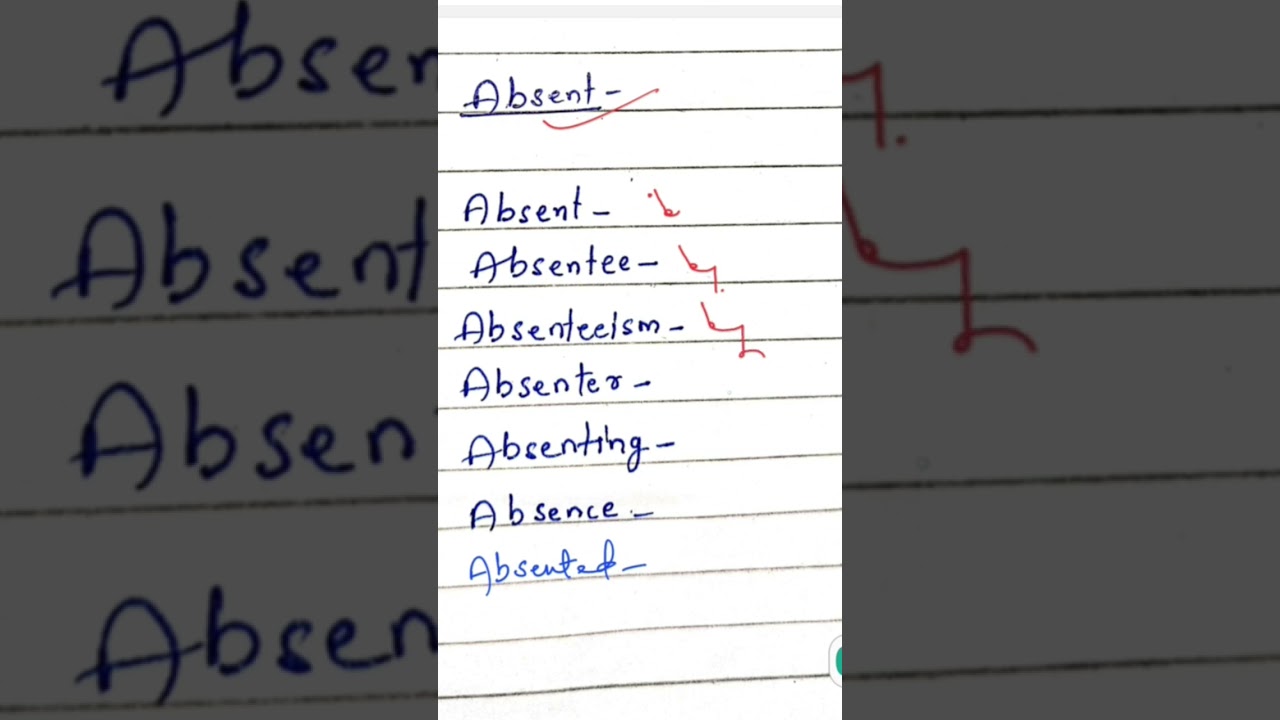 Absent-
Absent-
Absentee-
Absenteeism-
Absenter-
Absenting-
Absence-
Absented-